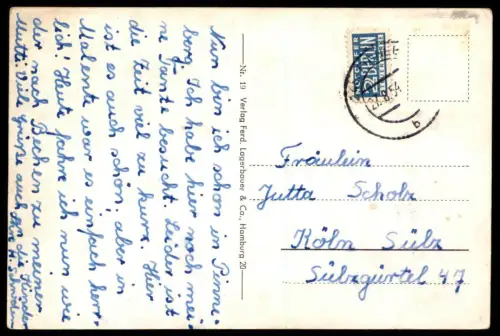 Nun bin ich schon in Pinne-
berg. Ich habe hier noch mei-
ne Tante besucht. Leider ist
die Zeit viel zu kurz. Hier
ist es auch schön, aber in
Malente war es einfach herr-
lich! Heute fahre ich nun wie-
der nach Bechen zu meiner
Mutti. Viele Grüße auch an die Kinder
Ihre H. Schröder
Nr. 19 Verlag Ferd. Lagerbauer & Co., Hamburg 20
NOTOPFER
2 BERLIN
STEUERMARKE
21.8.54
b
Fräulein
Jutta Scholz
Köln Sülz
Sülzgürtel 47